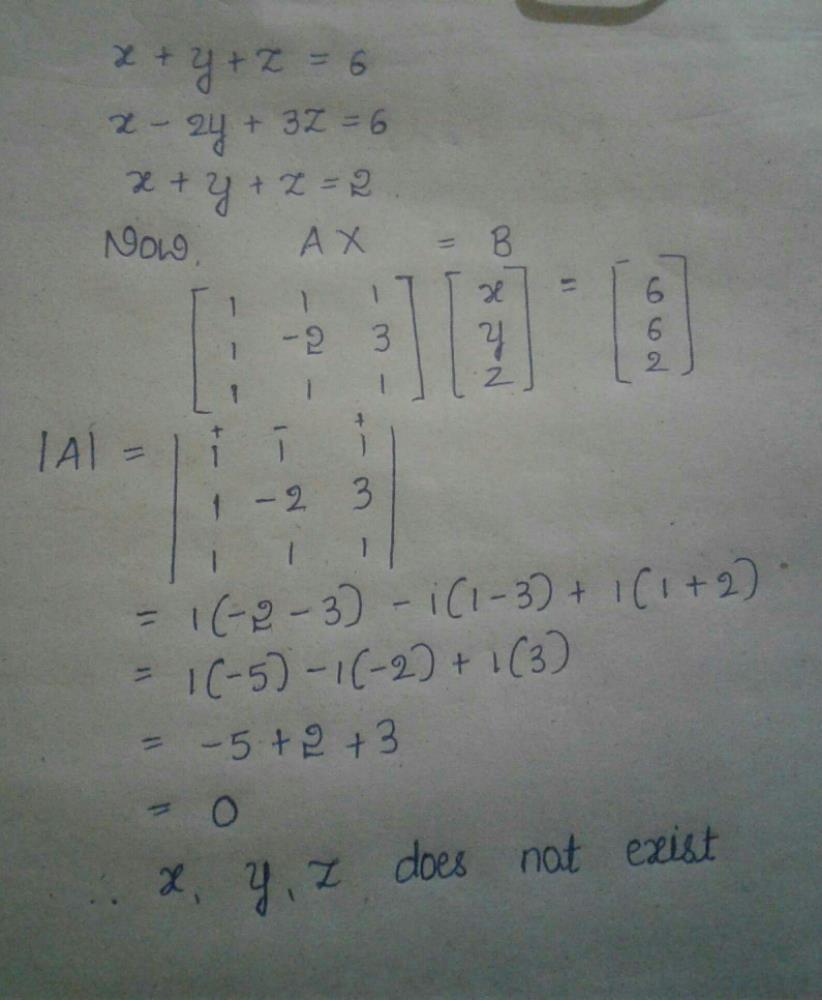 x + y + z = 6
x - 2y + 3z = 6
x + y + z = 2
Now, AX = B
[1 1 1; 1 -2 3; 1 1 1] [x; y; z] = [6; 6; 2]
|A| = |1 1 1; 1 -2 3; 1 1 1|
+ - +
= 1(-2 - 3) - 1(1 - 3) + 1(1 + 2)
= 1(-5) - 1(-2) + 1(3)
= -5 + 2 + 3
= 0
∴ x, y, z does not exist